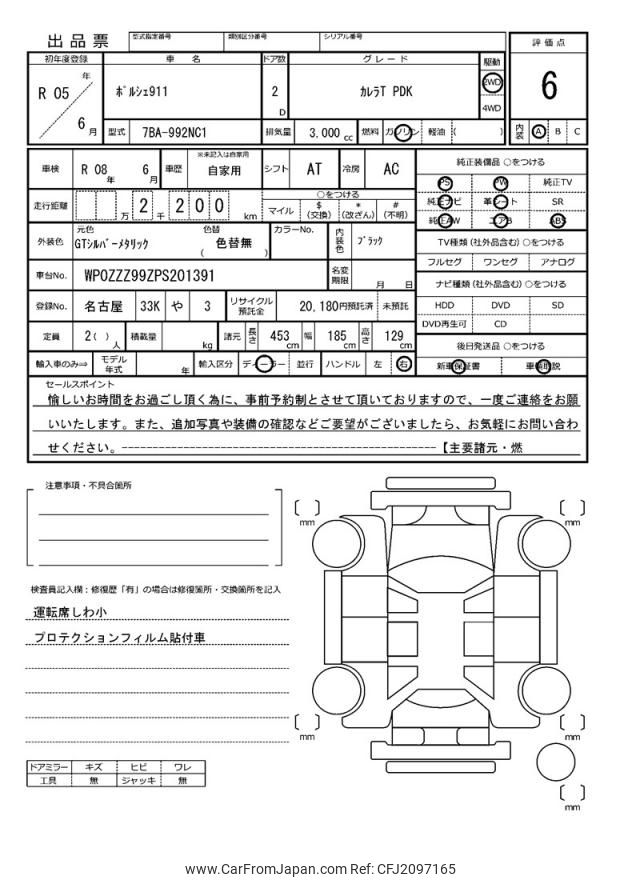 出品票 型式指定番号 類別区分番号 シリアル番号
評価点
6
内装 A B C
初年度登録 車名 ドア数 グレード 駆動
R 05 年 6 月 ﾎﾟﾙｼｪ911 2 D ｶﾚﾗT PDK 2WD
4WD
型式 7BA-992NC1 排気量 3,000 cc 燃料 ガソリン 軽油 ( )
車検 R 08 年 6 月 車歴 ※未記入は自家用 自家用 シフト AT 冷房 AC
走行距離 万 2 千 2 0 0 km ○をつける
マイル $ (交換) * (改ざん) # (不明)
外装色 元色 GTｼﾙﾊﾞｰﾒﾀﾘｯｸ 色替 ( 色替無 ) カラーNo. 内装色 ﾌﾞﾗｯｸ
車台No. WP0ZZZ99ZPS201391 名変期限 月 日
登録No. 名古屋 33K や 3 リサイクル預託金 20,180円預託済 未預託
定員 2( ) 人 積載量 kg 諸元 長さ 453 cm 幅 185 cm 高さ 129 cm
輸入車のみ⇒ モデル年式 年 輸入区分 ディーラー 並行 ハンドル 左 右
純正装備品 ○をつける
PS PW 純正TV
純正ナビ 革シート SR
純正AW エアB ABS
TV種類 (社外品含む) ○をつける
フルセグ ワンセグ アナログ
ナビ種類 (社外品含む) ○をつける
HDD DVD SD
DVD再生可 CD
後日発送品 ○をつける
新車保証書 車輌取説
セールスポイント
愉しいお時間をお過ごし頂く為に、事前予約制とさせて頂いておりますので、一度ご連絡をお願
いいたします。また、追加写真や装備の確認などご要望がございましたら、お気軽にお問い合わ
せください。--------------------------------------------------【主要諸元・燃
注意事項・不具合箇所
検査員記入欄：修復歴「有」の場合は修復箇所・交換箇所を記入
運転席しわ小
プロテクションフィルム貼付車
ドアミラー キズ ヒビ ワレ
工具 無 ジャッキ 無
mm
mm
mm
mm
mm
www.CarFromJapan.com Ref: CFJ2097165